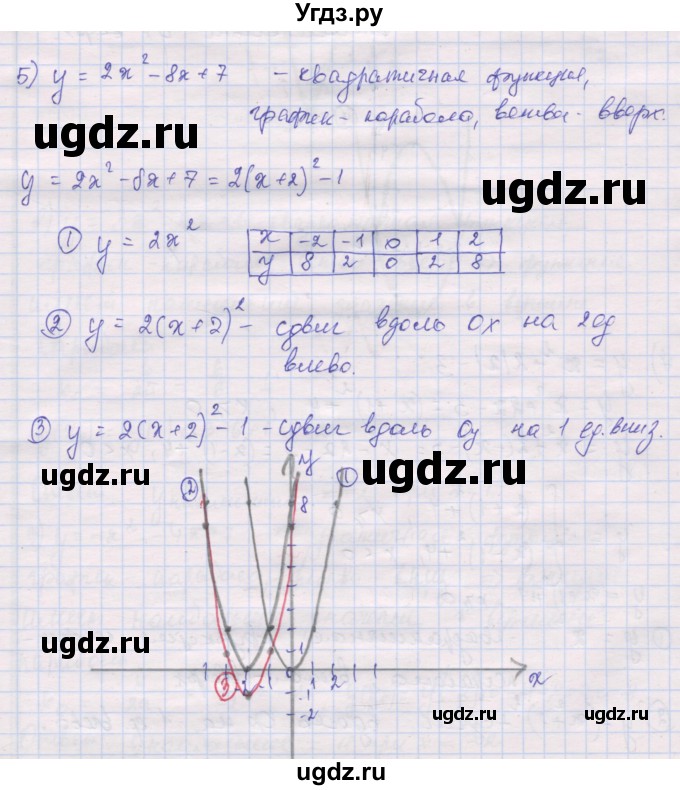 Угдз.ру
5) y = 2x² - 8x + 7 - квадратичная функция,
график - парабола, ветви - вверх.
ugdz.ru
y = 2x² - 8x + 7 = 2(x+2)² - 1
① y = 2x²
x -2 -1 0 1 2
y 8 2 0 2 8
② y = 2(x+2)² - сдвиг вдоль Ox на 2 ед
влево.
③ y = 2(x+2)² - 1 - сдвиг вдоль Oy на 1 ед. вниз.
ugdz.ru ugdz.ru
② y ①
8
ugdz.ru ugdz.ru
1
③ -1 0 1 2 x
-1
-2
ugdz.ru ugdz.ru
ugdz.ru